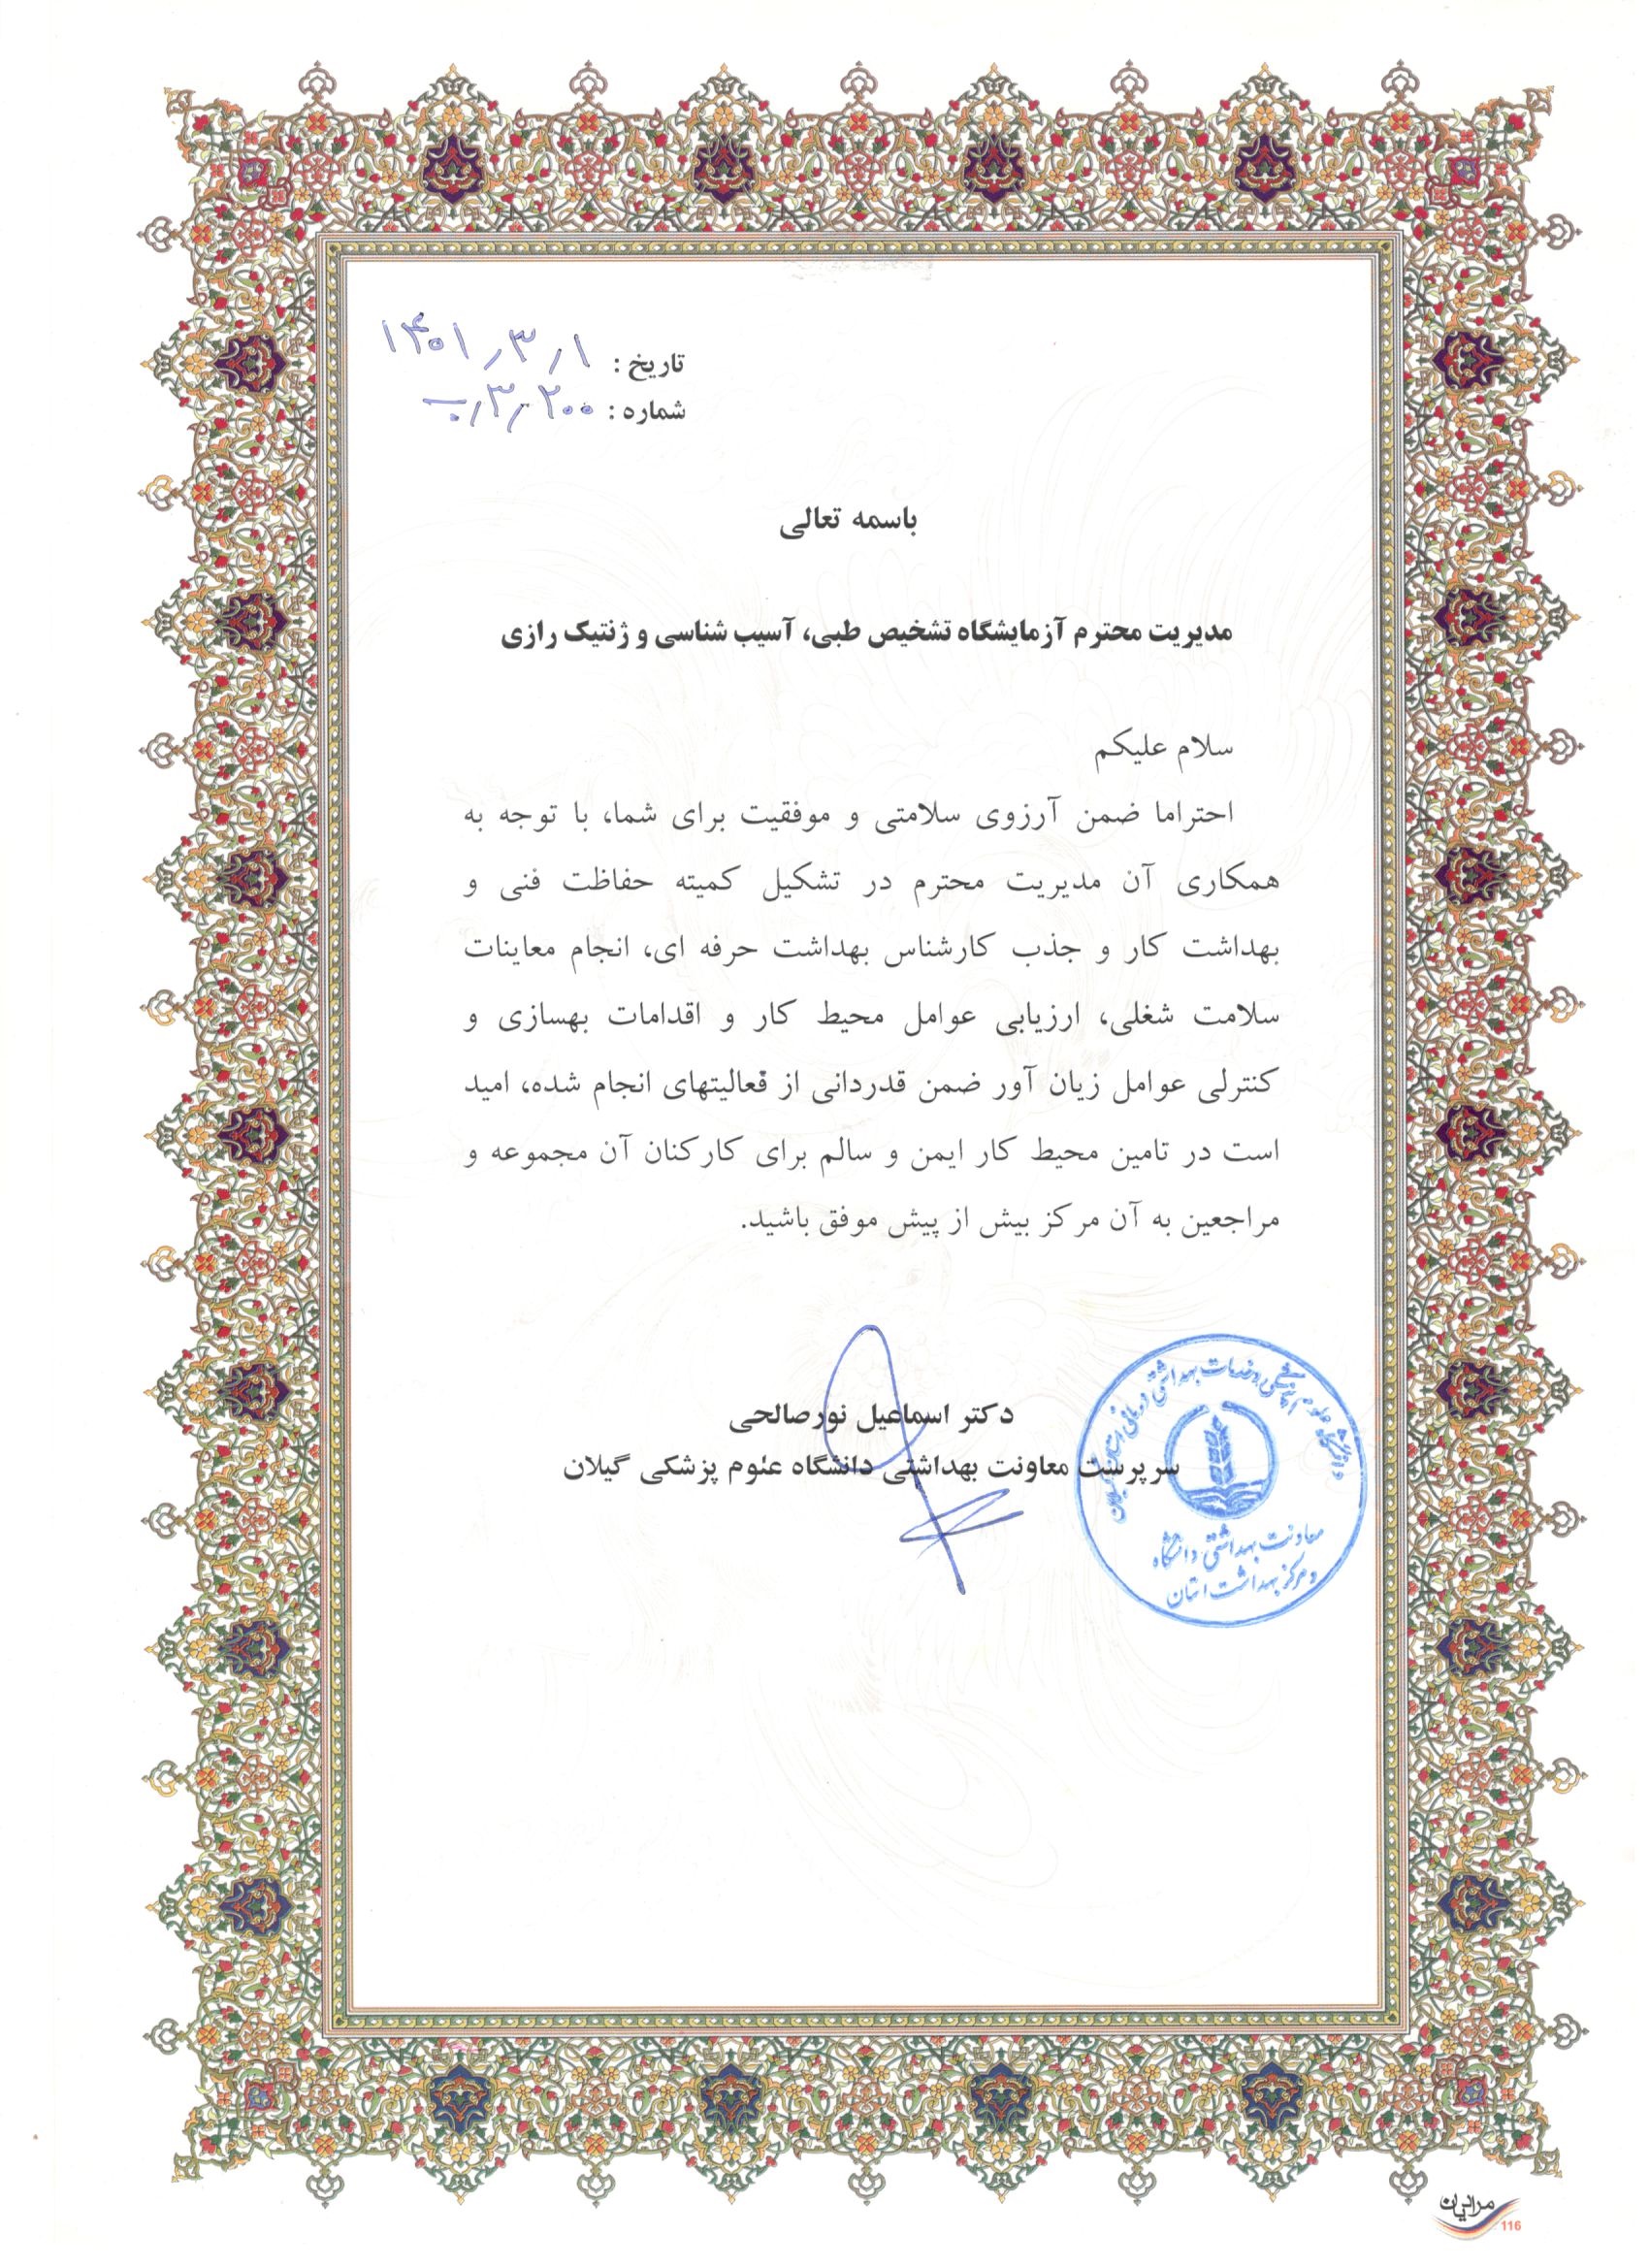 تاریخ : ۱۴۰۱/۳/۱
شماره :
باسمه تعالی
مدیریت محترم آزمایشگاه تشخیص طبی، آسیب شناسی و ژنتیک رازی
سلام علیکم
احتراما ضمن آرزوی سلامتی و موفقیت برای شما، با توجه به
همکاری آن مدیریت محترم در تشکیل کمیته حفاظت فنی و
بهداشت کار و جذب کارشناس بهداشت حرفه ای، انجام معاینات
سلامت شغلی، ارزیابی عوامل محیط کار و اقدامات بهسازی و
کنترلی عوامل زیان آور ضمن قدردانی از فعالیتهای انجام شده، امید
است در تامین محیط کار ایمن و سالم برای کارکنان آن مجموعه و
مراجعین به آن مرکز بیش از پیش موفق باشید.
دکتر اسماعیل نورصالحی
سرپرست معاونت بهداشتی دانشگاه علوم پزشکی گیلان
دانشگاه علوم پزشکی و خدمات بهداشتی درمانی استان گیلان
معاونت بهداشتی دانشگاه
و مرکز بهداشت استان
116